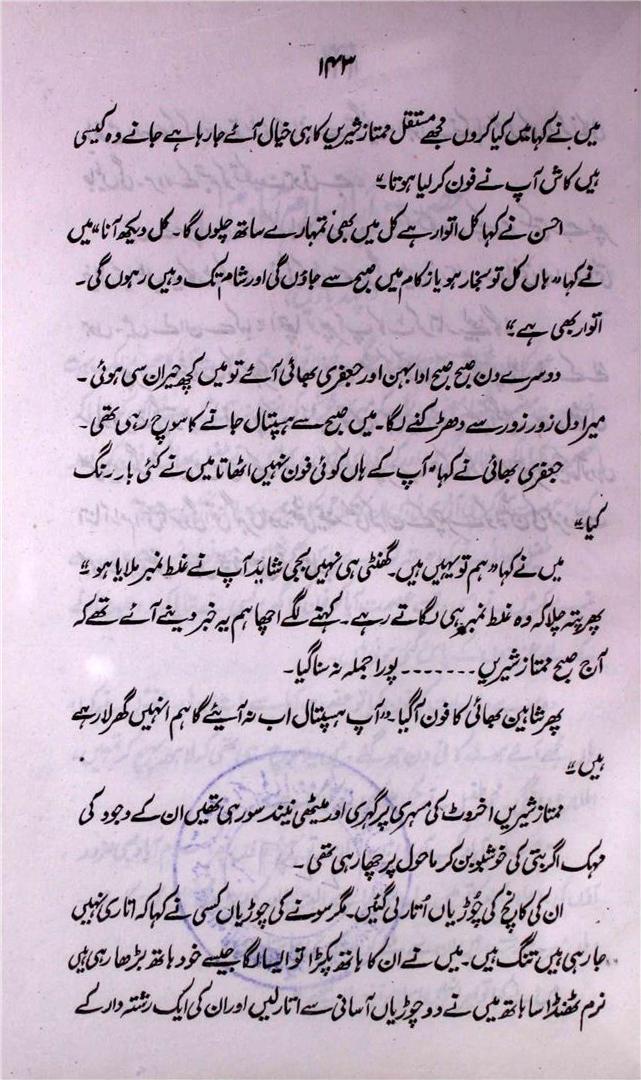 ۱۴۳
میں نے کہا میں کیا کروں مجھے مستقل ممتاز شیریں کا ہی خیال آئے جا رہا ہے جانے وہ کیسی
ہیں کاش آپ نے فون کر لیا ہوتا"
احسن نے کہا کل اتوار ہے کل میں بھی تمہارے ساتھ چلوں گا۔ کل دیکھ آنا" میں
نے کہا "ہاں کل تو بخار ہو یا زکام میں صبح سے جاؤں گی اور شام تک وہیں رہوں گی۔
اتوار بھی ہے"
دوسرے دن صبح صبح ادا بہن اور جعفری بھائی آئے تو میں کچھ حیران سی ہوئی۔
میرا دل زور زور سے دھڑکنے لگا۔ میں صبح سے ہسپتال جانے کا سوچ رہی تھی۔
جعفری بھائی نے کہا "آپ کے ہاں کوئی فون نہیں اٹھاتا میں نے کئی بار رنگ
کیا"
میں نے کہا "ہم تو یہیں ہیں۔ گھنٹی ہی نہیں بجی شاید آپ نے غلط نمبر ملایا ہو"
پھر پتہ چلا کہ وہ غلط نمبر ہی لگاتے رہے۔ کہنے لگے اچھا ہم یہ خبر دینے آئے تھے کہ
آج صبح ممتاز شیریں ------- پورا جملہ نہ سنا گیا۔
پھر شاہین بھائی کا فون آ گیا۔ "آپ ہسپتال اب نہ آیئے گا ہم انہیں گھر لا رہے
ہیں"
ممتاز شیریں اخروٹ کی مسہری پر گہری اور میٹھی نیند سو رہی تھیں ان کے وجود کی
مہک اگربتی کی خوشبو بن کر ماحول پر چھا رہی تھی۔
ان کی کانچ کی چُوڑیاں اُتار لی گئیں۔ مگر سونے کی چوڑیاں کسی نے کہا کہ اتاری نہیں
جا رہی ہیں تنگ ہیں۔ میں نے ان کا ہاتھ پکڑا تو ایسا لگا جیسے خود ہاتھ بڑھا رہی ہیں
نرم ٹھنڈا سا ہاتھ میں نے دو چوڑیاں آسانی سے اتار لیں اور ان کی ایک رشتہ دار کے